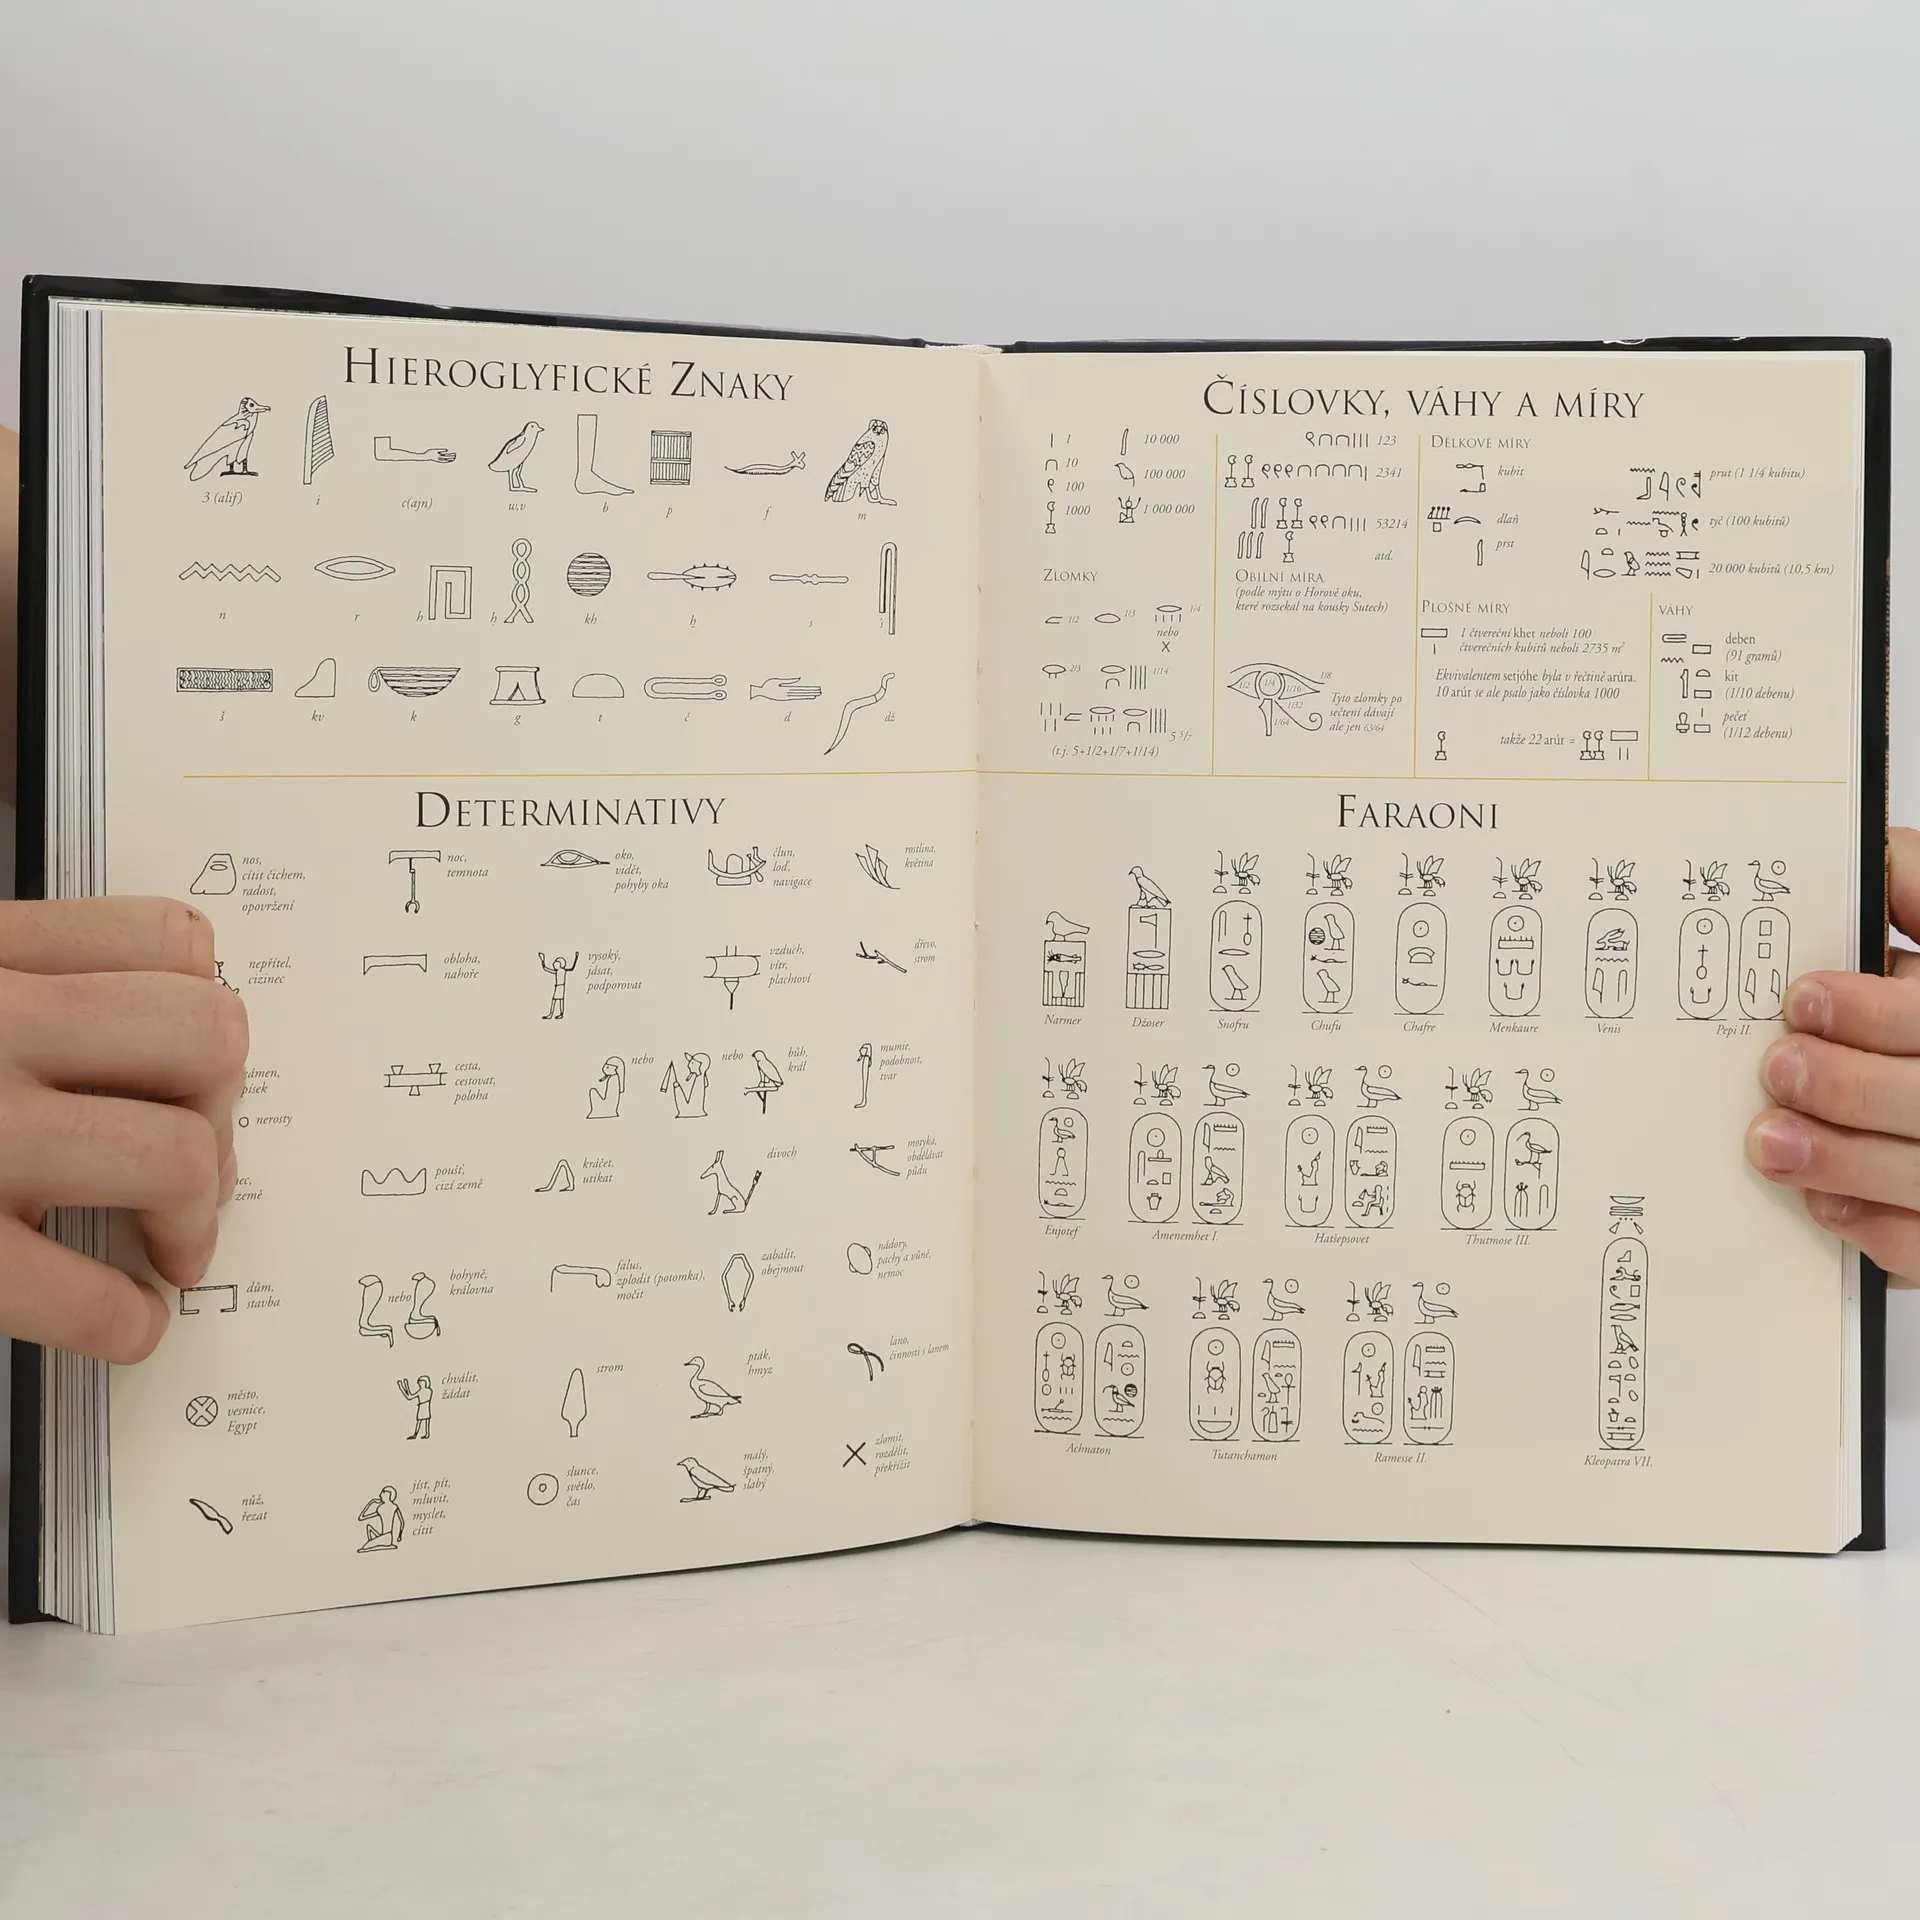 HIEROGLYFICKÉ ZNAKY
3 (alif)
i
c(ajn)
w,v
b
p
f
m
n
r
h
ḥ
kh
ẖ
s
š
kv
k
g
t
č
d
dž
DETERMINATIVY
nos,
cítit čichem,
radost,
opovržení
noc,
temnota
oko,
vidět,
pohyby oka
člun,
loď,
navigace
rostlina,
květina
nepřítel,
cizinec
obloha,
nahoře
vysoký,
jásat,
podporovat
vzduch,
vítr,
plachtoví
dřevo,
strom
písek
nerosty
cesta,
cestovat,
poloha
nebo
nebo
bůh,
král
mumie,
podobnost,
tvar
země
poušť,
cizí země
kráčet,
utíkat
divoch
motyka,
obdělávat
půdu
dům,
stavba
nebo
bohyně,
královna
falus,
zplodit (potomka),
močit
zabalit,
obejmout
nádory,
pachy a vůně,
nemoc
město,
vesnice,
Egypt
chválit,
žádat
strom
pták,
hmyz
lano,
činnosti s lanem
nůž,
řezat
jíst, pít,
mluvit,
myslet,
cítit
slunce,
světlo,
čas
malý,
špatný,
slabý
zlomit,
rozdělit,
překřížit
ČÍSLOVKY, VÁHY A MÍRY
1
10
100
1000
10 000
100 000
1 000 000
ZLOMKY
1/2
1/3
1/4
nebo
2/3
1/14
5 5/7
(t.j. 5+1/2+1/7+1/14)
123
2341
53214
atd.
OBILNÍ MÍRA
(podle mýtu o Horově oku,
které rozsekal na kousky Sutech)
1/2
1/4
1/16
1/8
1/32
1/64
Tyto zlomky po
sečtení dávají
ale jen 63/64
DÉLKOVÉ MÍRY
kubit
dlaň
prst
prut (1 1/4 kubitu)
tyč (100 kubitů)
20 000 kubitů (10,5 km)
PLOŠNÉ MÍRY
1 čtvereční khet neboli 100
čtverečních kubitů neboli 2735 m²
Ekvivalentem setjóhe byla v řečtině arúra.
10 arúr se ale psalo jako číslovka 1000
takže 22 arúr =
VÁHY
deben
(91 gramů)
kit
(1/10 debenu)
pečeť
(1/12 debenu)
FARAONI
Narmer
Džoser
Snofru
Chufu
Chafre
Menkaure
Venis
Pepi II.
Enjotef
Amenemhet I.
Hatšepsovet
Thutmose III.
Achnaton
Tutanchamon
Ramesse II.
Kleopatra VII.